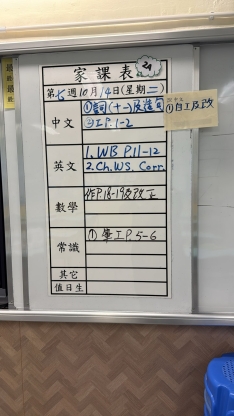 家課表
2A
第七週10月14日(星期二)
中文
①詞(十一)及造句
②工P.1-2
①自工及改
英文
1. WB P.11-12
2. Ch. WS. Corr.
數學
作P.18-19及改正
常識
① 筆工P.5-6
其它
值日生